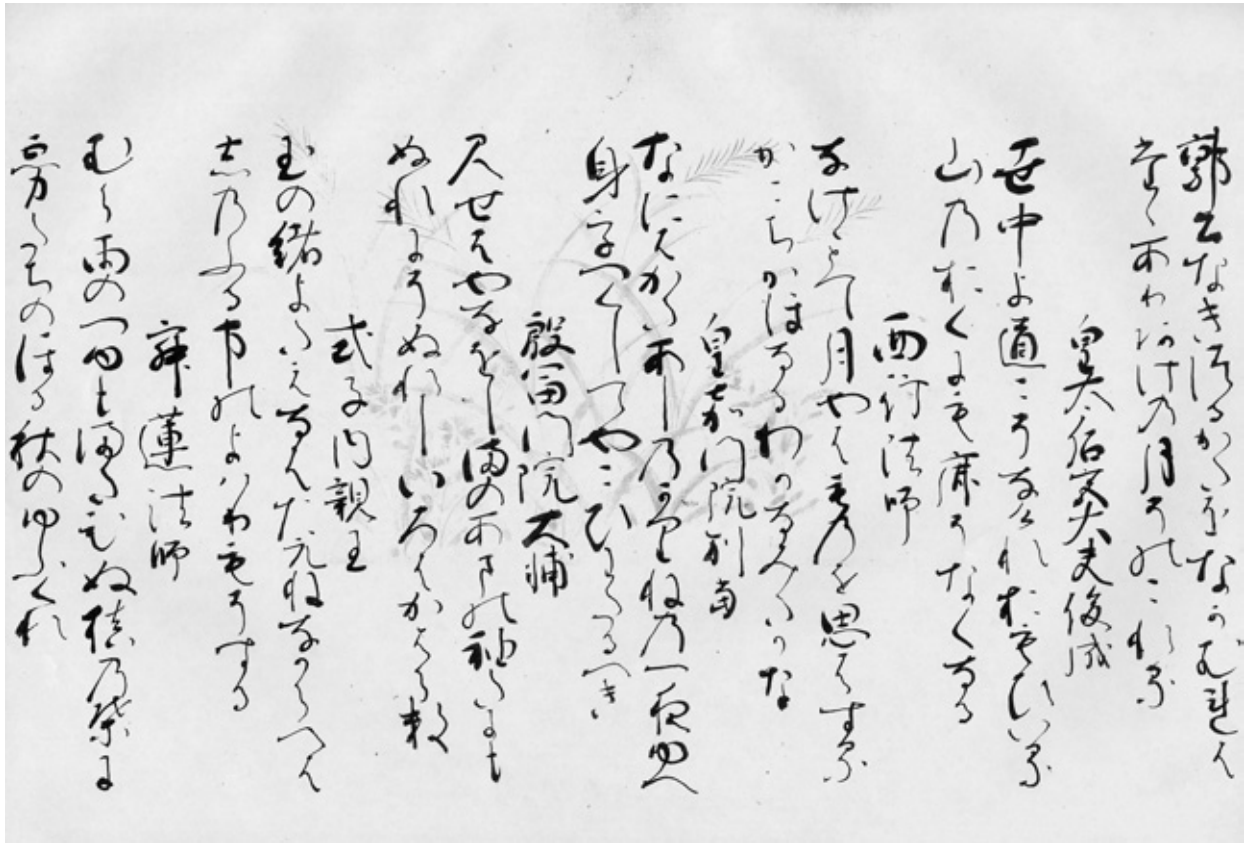 郭公なきつるかたをなかむれは
たゝあり明けの月そのこれる
皇太后宮大夫俊成
世中よ道こそなけれおもひいる
山乃おくにも鹿そなくなる
西行法師
なけゝとて月やはものを思はする
かこちかほなるわかなみたかな
皇嘉門院別当
なにはえのあしのかりねの一夜ゆへ
身をつくしてやこひわたるへき
殷富門院大輔
見せはやなをしまのあまの袖たにも
ぬれにそぬれしいろはかはらす
式子内親王
玉の緒よたえなはたえねなからへは
志のふる事のよはりもそする
寂蓮法師
むら雨のつゆもまたひぬ槙の葉に
霧たちのほる秋のゆふくれ